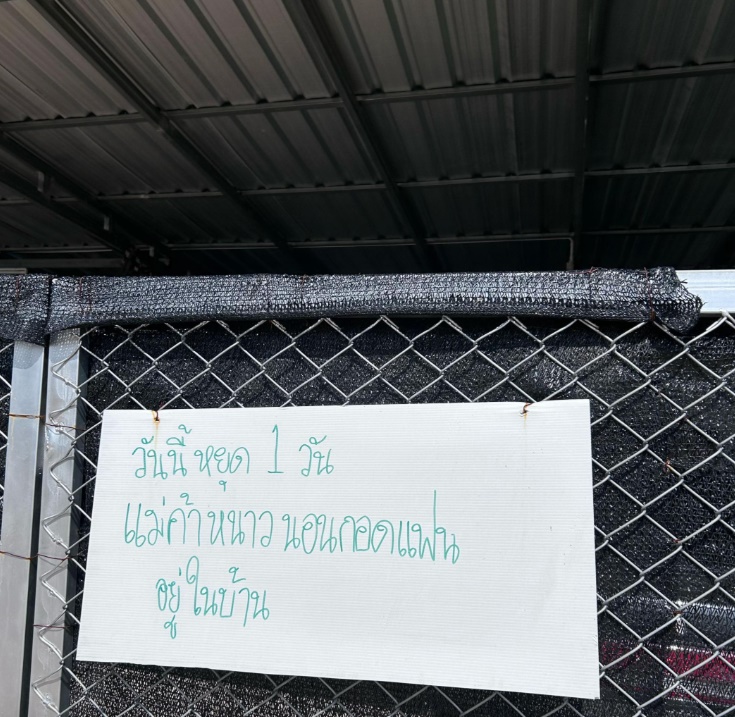 วันนี้ หยุด 1 วัน
แม่ค้าหนาว นอนกอดแฟน
อยู่ในบ้าน